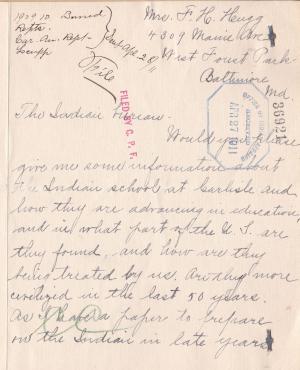 1909-10 Bound
Repts.
Ent Apr 28/11
File
FILED BY C. P. F.
Mrs. F. H. Hugg
4309 Maine Ave
West Forest Park
Baltimore
Md
36921
APR 27 1911
The Indian Bureau.
Would you please
give me some information about
the Indian school at Carlisle and
how they are advancing in education,
and in what part of the U. S. are
they found, and how are they
being treated by us. Are they more
civilized in the last 50 years.
As I have a paper to prepare
on the Indian in late years